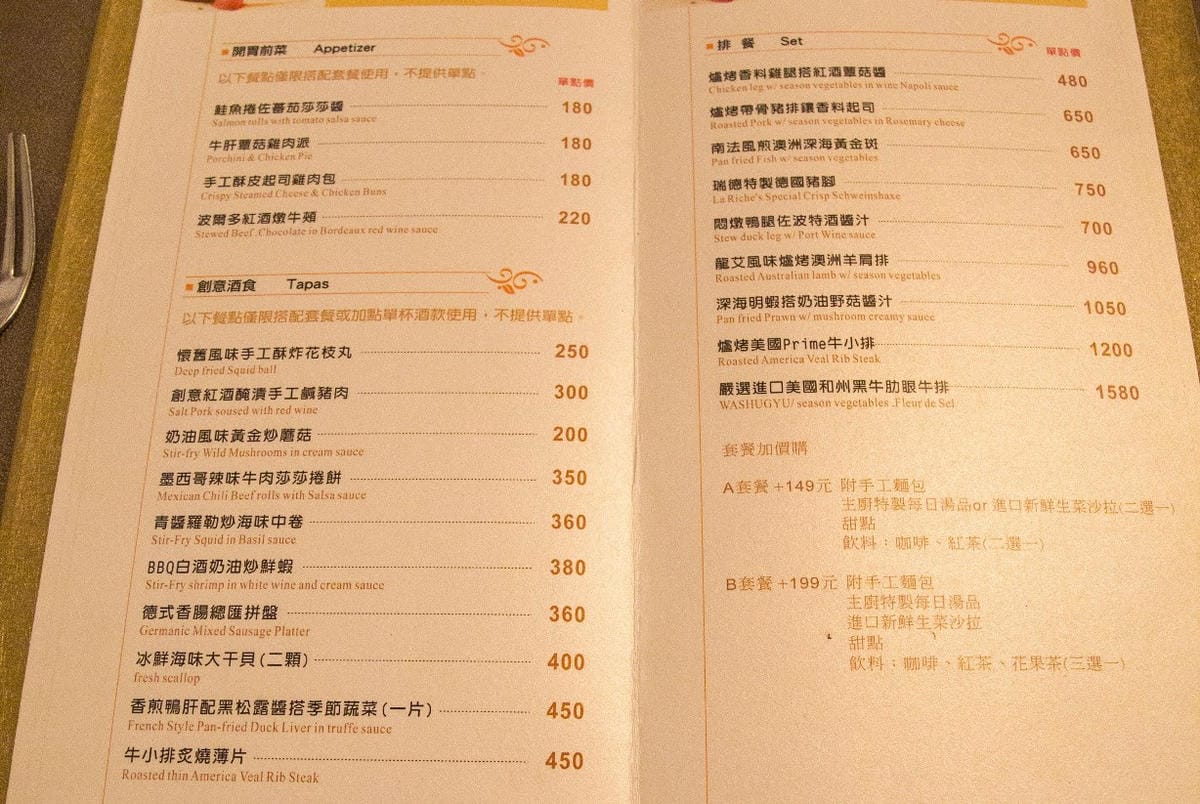 開胃前菜 Appetizer
以下餐點僅限搭配套餐使用，不提供單點。
單點價
鮭魚捲佐蕃茄莎莎醬 180
Salmon rolls with tomato salsa sauce
牛肝蕈菇雞肉派 180
Porchini & Chicken Pie
手工酥皮起司雞肉包 180
Crispy Steamed Cheese & Chicken Buns
波爾多紅酒燉牛頰 220
Stewed Beef .Chocolate in Bordeaux red wine sauce
創意酒食 Tapas
以下餐點僅限搭配套餐或加點單杯酒款使用，不提供單點。
懷舊風味手工酥炸花枝丸 250
Deep fried Squid ball
創意紅酒醃漬手工鹹豬肉 300
Salt Pork soused with red wine
奶油風味黃金炒蘑菇 200
Stir-fry Wild Mushrooms in cream sauce
墨西哥辣味牛肉莎莎捲餅 350
Mexican Chili Beef rolls with Salsa sauce
青醬羅勒炒海味中卷 360
Stir-Fry Squid in Basil sauce
BBQ白酒奶油炒鮮蝦 380
Stir-Fry shrimp in white wine and cream sauce
德式香腸總匯拼盤 360
Germanic Mixed Sausage Platter
冰鮮海味大干貝(二顆) 400
fresh scallop
香煎鴨肝配黑松露醬搭季節蔬菜(一片) 450
French Style Pan-fried Duck Liver in truffe sauce
牛小排炙燒薄片 450
Roasted thin America Veal Rib Steak
排 餐 Set
單點價
爐烤香料雞腿搭紅酒蕈菇醬 480
Chicken leg w/ season vegetables in wine Napoli sauce
爐烤帶骨豬排鑲香料起司 650
Roasted Pork w/ season vegetables in Rosemary cheese
南法風煎澳洲深海黃金斑 650
Pan fried Fish w/ season vegetables
瑞德特製德國豬腳 750
La Riche's Special Crisp Schweinshaxe
悶燉鴨腿佐波特酒醬汁 700
Stew duck leg w/ Port Wine sauce
龍艾風味爐烤澳洲羊肩排 960
Roasted Australian lamb w/ season vegetables
深海明蝦搭奶油野菇醬汁 1050
Pan fried Prawn w/ mushroom creamy sauce
爐烤美國Prime牛小排 1200
Roasted America Veal Rib Steak
嚴選進口美國和州黑牛肋眼牛排 1580
WASHUGYU/ season vegetables .Fleur de Sel
套餐加價購
A套餐 +149元 附手工麵包
主廚特製每日湯品or 進口新鮮生菜沙拉(二選一)
甜點
飲料：咖啡、紅茶(二選一)
B套餐 +199元 附手工麵包
主廚特製每日湯品
進口新鮮生菜沙拉
甜點
飲料：咖啡、紅茶、花果茶(三選一)